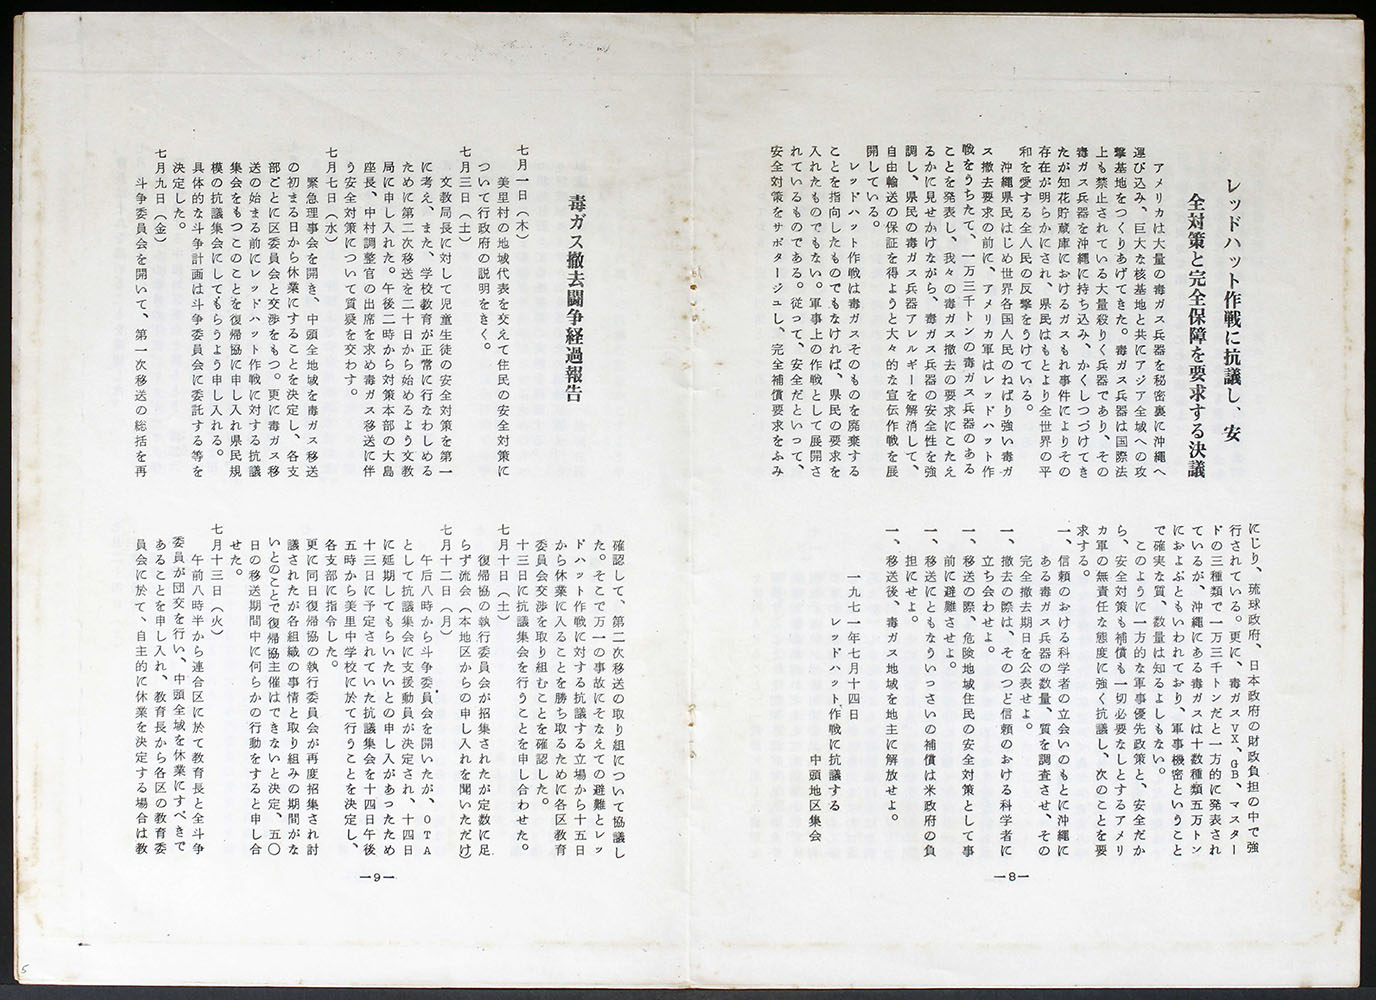 レッドハット作戦に抗議し、安
全対策と完全保障を要求する決議
アメリカは大量の毒ガス兵器を秘密裏に沖縄へ
運び込み、巨大な核基地と共にアジア全域への攻
撃基地をつくりあげてきた。毒ガス兵器は国際法
上も禁止されている大量殺りく兵器であり、その
毒ガス兵器を沖縄に持ち込み、かくしつづけてき
たが知花貯蔵庫におけるガスもれ事件によりその
存在が明らかにされ、県民はもとより全世界の平
和を愛する全人民の反撃をうけている。
沖縄県民はじめ世界各国人民のねばり強い毒ガ
ス撤去要求の前に、アメリカ軍はレッドハット作
戦をうちたて、一万三千トンの毒ガス兵器のある
ことを発表し、我々の毒ガス撤去の要求にこたえ
るかに見せかけながら、毒ガス兵器の安全性を強
調し、県民の毒ガス兵器アレルギーを解消して、
自由輸送の保証を得ようと大々的な宣伝作戦を展
開している。
レッドハット作戦は毒ガスそのものを廃棄する
ことを指向したものでもなければ、県民の要求を
入れたものでもない。軍事上の作戦として展開さ
れているものである。従って、安全だといって、
安全対策をサボタージュし、完全補償要求をふみ
にじり、琉球政府、日本政府の財政負担の中で強
行されている。更に、毒ガスVX、GB、マスター
ドの三種類で一万三千トンだと一方的に発表され
ているが、沖縄にある毒ガスは十数種類五万トン
におよぶともいわれており、軍事機密ということ
で確実な質、数量は知るよしもない。
このように一方的な軍事優先政策と、安全だか
ら、安全対策も補償も一切必要なしとするアメリ
カ軍の無責任な態度に強く抗議し、次のことを要
求する。
一、信頼のおける科学者の立会いのもとに沖縄に
ある毒ガス兵器の数量、質を調査させ、その
完全撤去期日を公表せよ。
一、撤去の際は、そのつど信頼のおける科学者に
立ち会わせよ。
一、移送の際、危険地域住民の安全対策として事
前に避難させよ。
一、移送にともなういっさいの補償は米政府の負
担にせよ。
一、移送後、毒ガス地域を地主に解放せよ。
一九七一年七月十四日
レッドハット作戦に抗議する
中頭地区集会
―8―
毒ガス撤去闘争経過報告
七月一日(木)
美里村の地域代表を交えて住民の安全対策に
ついて行政府の説明をきく。
七月三日(土)
文教局長に対して児童生徒の安全対策を第一
に考え、また、学校教育が正常に行なわしめる
ために第二次移送を二十日から始めるよう文教
局に申し入れた。午後二時から対策本部の大島
座長、中村調整官の出席を求め毒ガス移送に伴
う安全対策について質疑を交わす。
七月七日(水)
緊急理事会を開き、中頭全地域を毒ガス移送
の初まる日から休業にすることを決定し、各支
部ごとに区委員会と交渉をもつ。更に毒ガス移
送の始まる前にレッドハット作戦に対する抗議
集会をもつこのことを復帰協に申し入れ県民規
模の抗議集会にしてもらうよう申し入れる。
具体的な斗争計画は斗争委員会に委託する等を
決定した。
七月九日(金)
斗争委員会を開いて、第一次移送の総括を再
確認して、第二次移送の取り組について協議し
た。そこで万一の事故にそなえての避難とレッ
ドハット作戦に対する抗議する立場から十五日
から休業に入ることを勝ち取るために各区教育
委員会交渉を取り組むことを確認した。
十三日に抗議集会を行うことを申し合わせた。
七月十日(土)
復帰協の執行委員会が招集されたが定数に足
らず流会(本地区からの申し入れを聞いただけ)
七月十二日(月)
午后八時から斗争委員会を開いたが、OTA
として抗議集会に支援動員が決定され、十四日
に延期してもらいたいとの申し入があったため
十三日に予定されていた抗議集会を十四日午後
五時から美里中学校に於て行うことを決定し、
各支部に指令した。
更に同日復帰協の執行委員会が再度招集され討
議されたが各組織の事情と取り組みの期間がな
いとのことで復帰協主催はできないと決定、五〇
日の移送期間中に何らかの行動をすると申し合
せた。
七月十三日(火)
午前八時半から連合区に於て教育長と全斗争
委員が団交を行い、中頭全域を休業にすべきで
あることを申し入れ、教育長から各区の教育委
員会に於て、自主的に休業を決定する場合は教
―9―
5